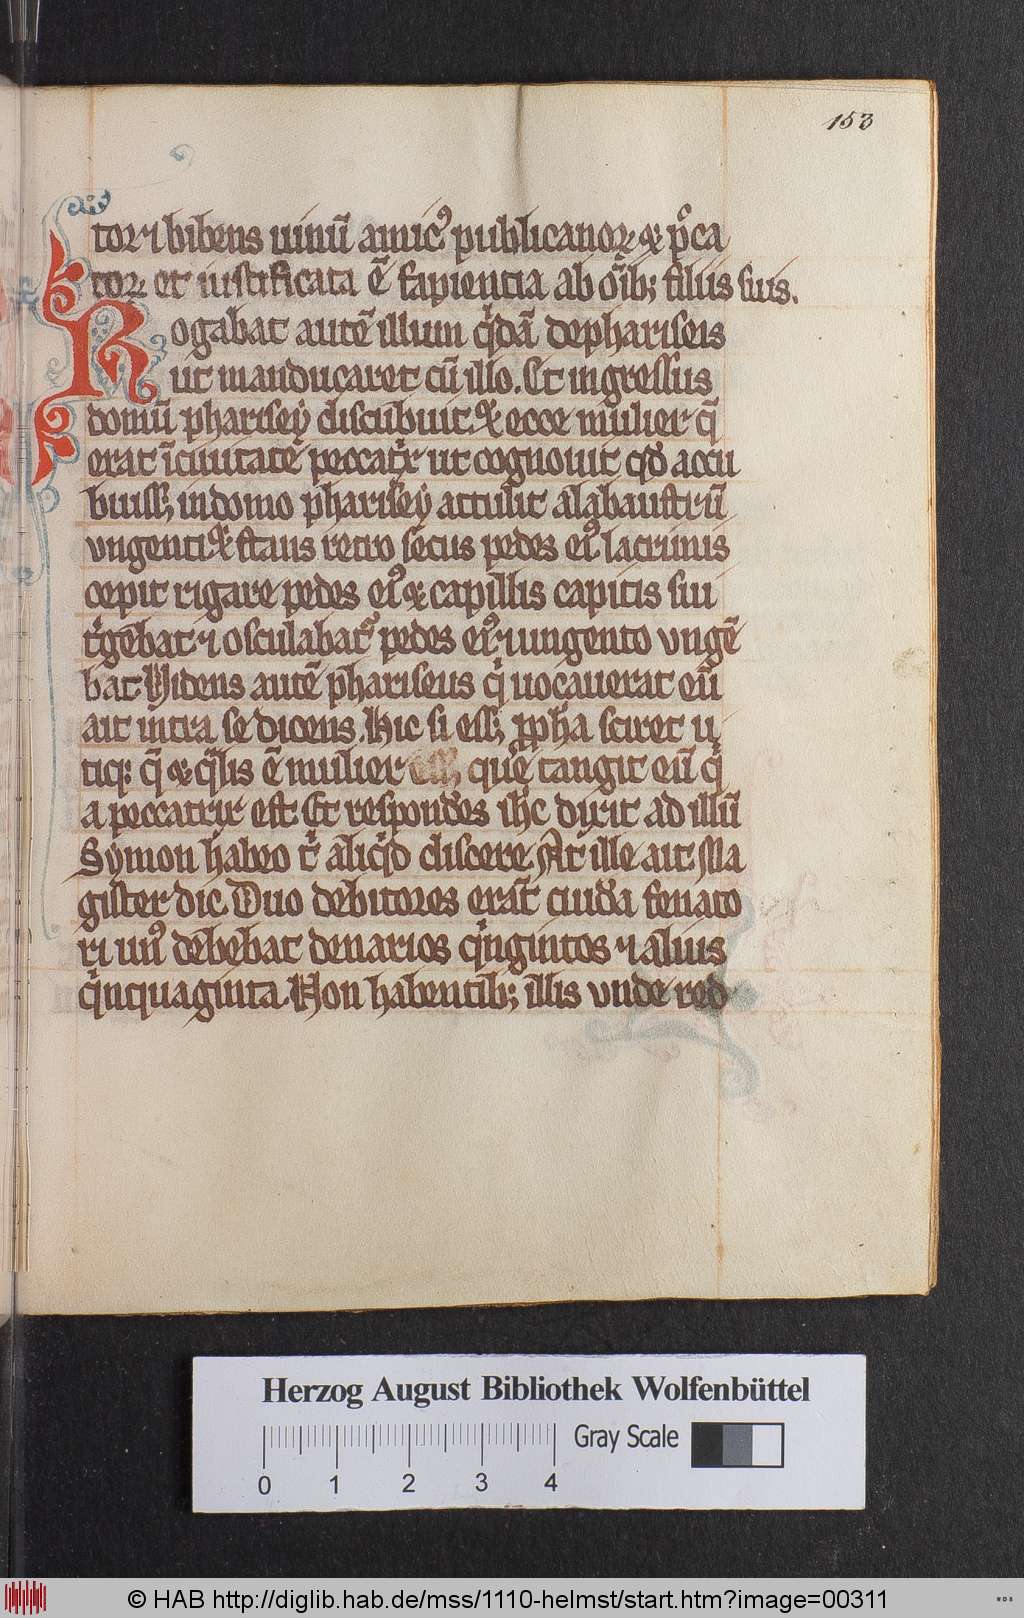 153
tor ⁊ bibens uinū amic᷒ publicanoꝝ & pͦca
toꝝ et iustificata ē sapientia ab oīb; filiis suis.
Rogabat autē illum qͥdā de phariseis
ut manducaret cū illo. Et ingressus
domū pharisey discubuit. & ecce mulier q̄
erat ī ciuitate peccatͥx ut cognouit qd̓ accu
buiss; in domo pharisey attulit alabaustrū
vngenti & stans retro secus pedes ei᷒ lacrimis
cepit rigare pedes ei᷒ & capillis capitis sui
t̓gebat ⁊ osculabatᷣ pedes ei᷒ ⁊ ungento vngē
bat Videns autē phariseus qͥ uocauerat eū
ait intra se dicens. Hic si ess; ꝓpha sciret u
tiq: q̄ & qͣlis ē mulier quē tangit eū qͥ
a peccatrix est. Et respond̓es ihc dixit ad illū
Symon habeo tͥ aliqͥd discere. At ille ait Ma
gister dic. Duo debitores erāt cuidā fenato
ri un᷒ debebat denarios qͥngintos ⁊ alius
qͥnquaginta. Non habentib; illis vnde red
Herzog August Bibliothek Wolfenbüttel
0 1 2 3 4 Gray Scale
© HAB http://diglib.hab.de/mss/1110-helmst/start.htm?image=00311